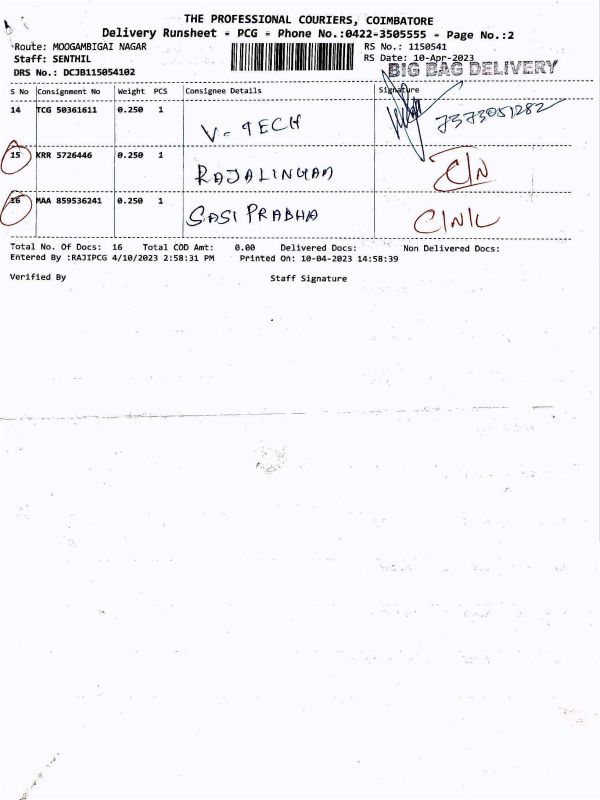 THE PROFESSIONAL COURIERS, COIMBATORE
Delivery Runsheet - PCG - Phone No.:0422-3505555 - Page No.:2
Route: MOOGAMBIGAI NAGAR RS No.: 1150541
Staff: SENTHIL RS Date: 10-Apr-2023
DRS No.: DCJB115054102 BIG BAG DELIVERY
S No Consignment No Weight PCS Consignee Details Signature
14 TCG 50361611 0.250 1 V-TECH 7373051282
15 KRR 5726446 0.250 1 RAJALINGAM C/N
16 MAA 859536241 0.250 1 SASI PRABHA
Total No. Of Docs: 16 Total COD Amt: 0.00 Delivered Docs: Non Delivered Docs:
Entered By :RAJIPCG 4/10/2023 2:58:31 PM Printed On: 10-04-2023 14:58:39
Verified By Staff Signature